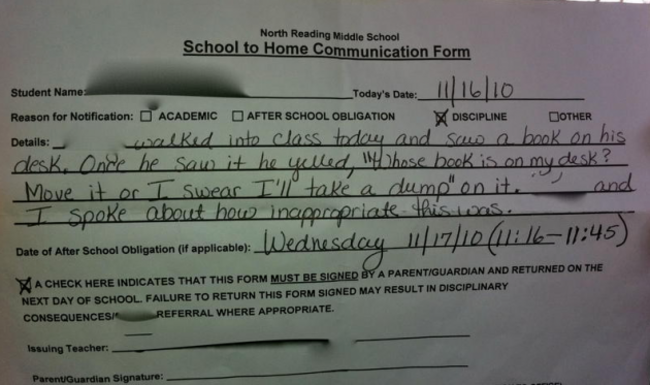 North Reading Middle School
School to Home Communication Form
Student Name: Today's Date: 11/16/10
Reason for Notification: ☐ ACADEMIC ☐ AFTER SCHOOL OBLIGATION ☒ DISCIPLINE ☐ OTHER
Details: walked into class today and saw a book on his
desk. Once he saw it he yelled, "Whose book is on my desk?
Move it or I swear I'll take a dump" on it. and
I spoke about how inappropriate this was.
Date of After School Obligation (if applicable): Wednesday 11/17/10 (11:16-11:45)
☒ A CHECK HERE INDICATES THAT THIS FORM MUST BE SIGNED BY A PARENT/GUARDIAN AND RETURNED ON THE
NEXT DAY OF SCHOOL. FAILURE TO RETURN THIS FORM SIGNED MAY RESULT IN DISCIPLINARY
CONSEQUENCES/ REFERRAL WHERE APPROPRIATE.
Issuing Teacher:
Parent/Guardian Signature: